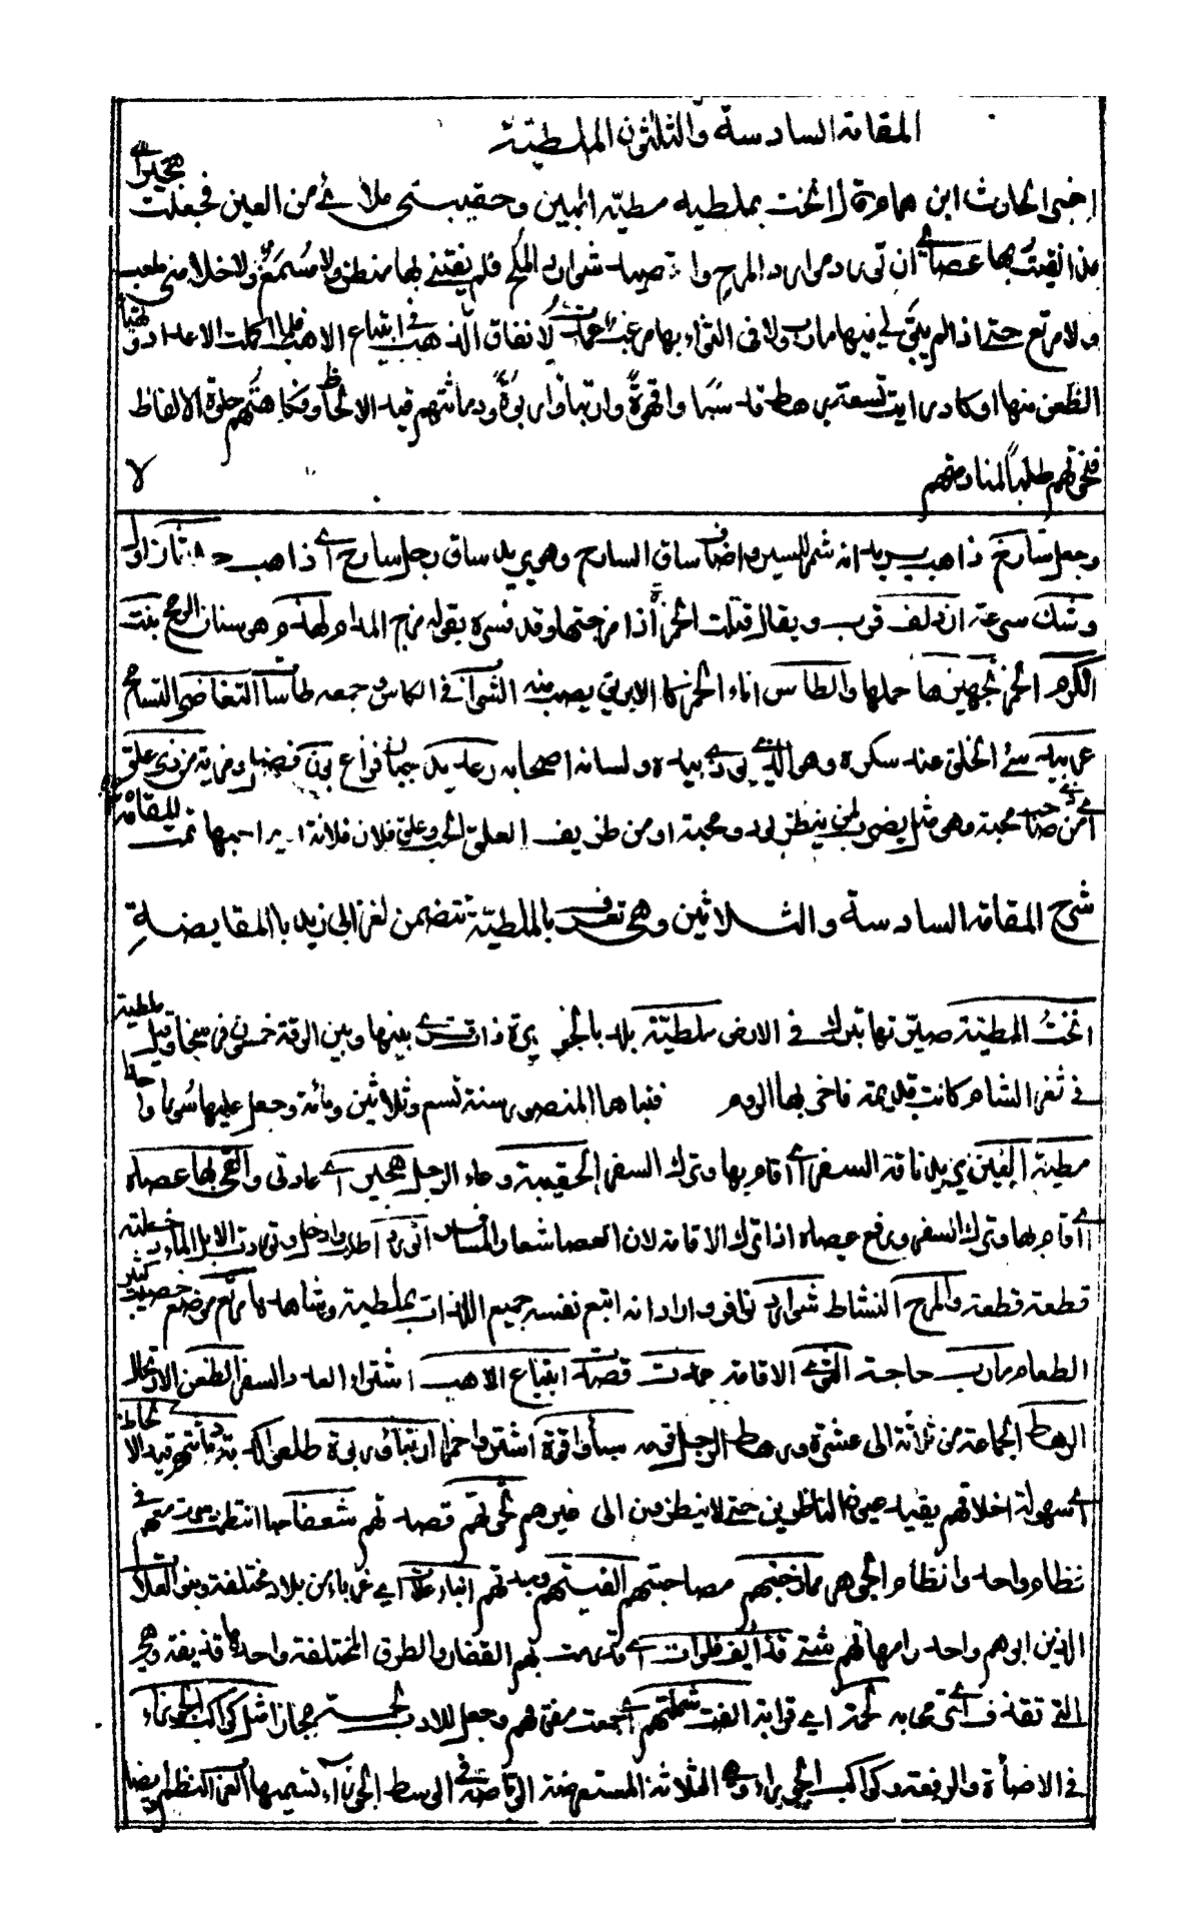 المقامة السادسة والثلثون الملطية
اخبر الحارث ابن همام قال انخت بملطية مطية البين وحقيبتي ملأى من العين فجعلت هجيراي
مذ القيت بها عصاي ان تورد موارد المرح واتصيد شوارد الملح فلم يفتني بها منظر ولا مسمع ولا خلا مني ملعب
ولا مرتع حتى اذا لم يبق لي فيها مارب ولا في الثواء بها مرغب عمدت لانفاق الذهب في ابتياع الاهب فلما اكملت الاعداد وتهيأ
الظعن منها او كاد رايت تسعة رهط قد سبأوا قهوة وارتبأوا ربوة ودماثتهم قيد الالحاظ وفكاهتهم حلوة الالفاظ
فنحوتهم طلبا لمنادمتهم لا
وجعل سارح ذاهب يريد انه شمر للسير واضاف ساق السارح وهو يريد ساق رجل سارح اي ذاهب
وشك سرعة ازدلف قرب ويقال قتلت الخمر اذا مزجتها وقد فسره بقوله مزج المدام لهذم وهو سنان الرمح بنت
الكرم الخمر تجهيزها حملها والطاس اناء الخمر كالابريق يصب منه الشراب في الكاس وجمعه طاسات التغاضي التسامح
عربيد سئ الخلق عند سكره وهو الذي يؤذي بيده ولسانه اصحابه رعديد جبان فزاع
اي من صاحب محبة وهو مثل يضرب لمن ينظر بود ومحبة او من طريف العلق الحب وعلق فلان فلانة احبها تمت المقامة
شرح المقامة السادسة والثلاثين وهي تعرف بالملطية تتضمن لغز ابي زيد بالمقايضة
انخت المطية صيرتها تبرك في الارض ملطية بلد بالجزيرة ذات بينها وبين الرقة خمسون فرسخا وقيل ملطية
في ثغر الشام كانت قديمة فاخربها الروم فبناها المنصور سنة تسع وثلاثين ومائة وجعل عليها سورا واحدا
مطية البين يريد ناقة السفر اي اقام بها وترك السفر الحقيبة وعاء الرجل هجيراي اي عادتي والقى بها عصاه
اي اقام بها وترك السفر ورفع عصاه اذا ترك الاقامة لان العصا شعار المسافر اتورد اطلب وادخل وتوردت الابل الماء دخلته
قطعة قطعة والمرح النشاط شوارد نوافر واراد انه اتبع نفسه جميع اللذات بملطية وشاهدها مرتع موضع خصيب كثير
الطعام مارب حاجة الثوي الاقامة عمدت قصدت ابتياع الاهب اشتراء العدد والسفر الظعن الارتحال
الرهط الجماعة من ثلاثة الى عشرة ورهط الرجل قومه سبأوا قهوة اشتروا خمرا ارتبأوا ربوة طلعوا اكمة دماثتهم قيد الالحاظ
اي سهولة اخلاقهم يقيد عيون الناظرين حتى لا ينظرون الى غيرهم نحوتهم قصدتهم
نظام واحد وانظام الجوهر ممازجتهم مصاحبتهم الفيتهم وجدتهم ابناء علات اي غرباء من بلاد مختلفة وبنو العلات
الذين ابوهم واحد وامهاتهم شتى قذائف فلوات اي قد رمت بهم القفار والطرق المختلفة واحدها قذيفة وهي
التي تقذف اي ترمى به لحمة اي قرابة الفت شملتهم اي جمعت مفترقهم وجعل للادب لحمة مجازا مثل كواكب الجوزاء
في الاضأة والرفعة وكواكب الجوزاء وهي الثلاثة المستعرضة في الوسط الجوزاء تسميها العرب النظم ايضا